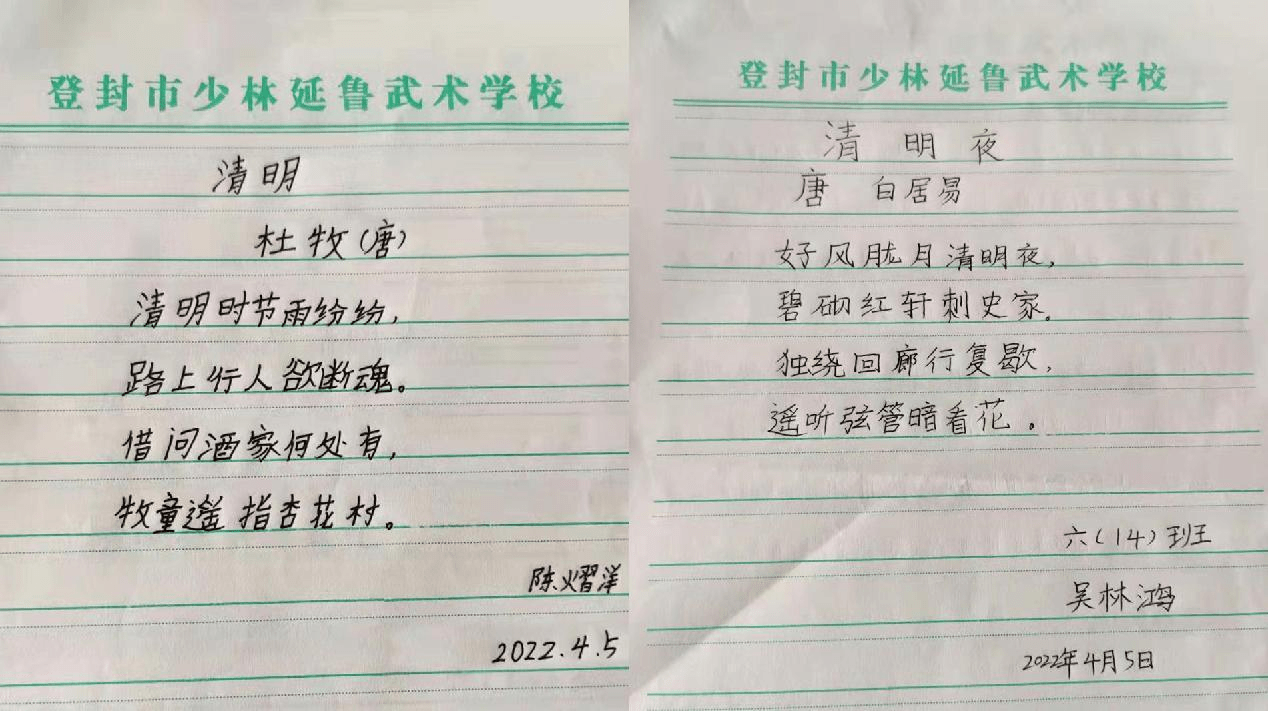 登封市少林延鲁武术学校
清明
杜牧(唐)
清明时节雨纷纷,
路上行人欲断魂。
借问酒家何处有,
牧童遥指杏花村。
陈熠洋
2022.4.5
登封市少林延鲁武术学校
清明夜
唐 白居易
好风胧月清明夜,
碧砌红轩刺史家。
独绕回廊行复歇,
遥听弦管暗看花。
六(14)班
吴林鸿
2022年4月5日